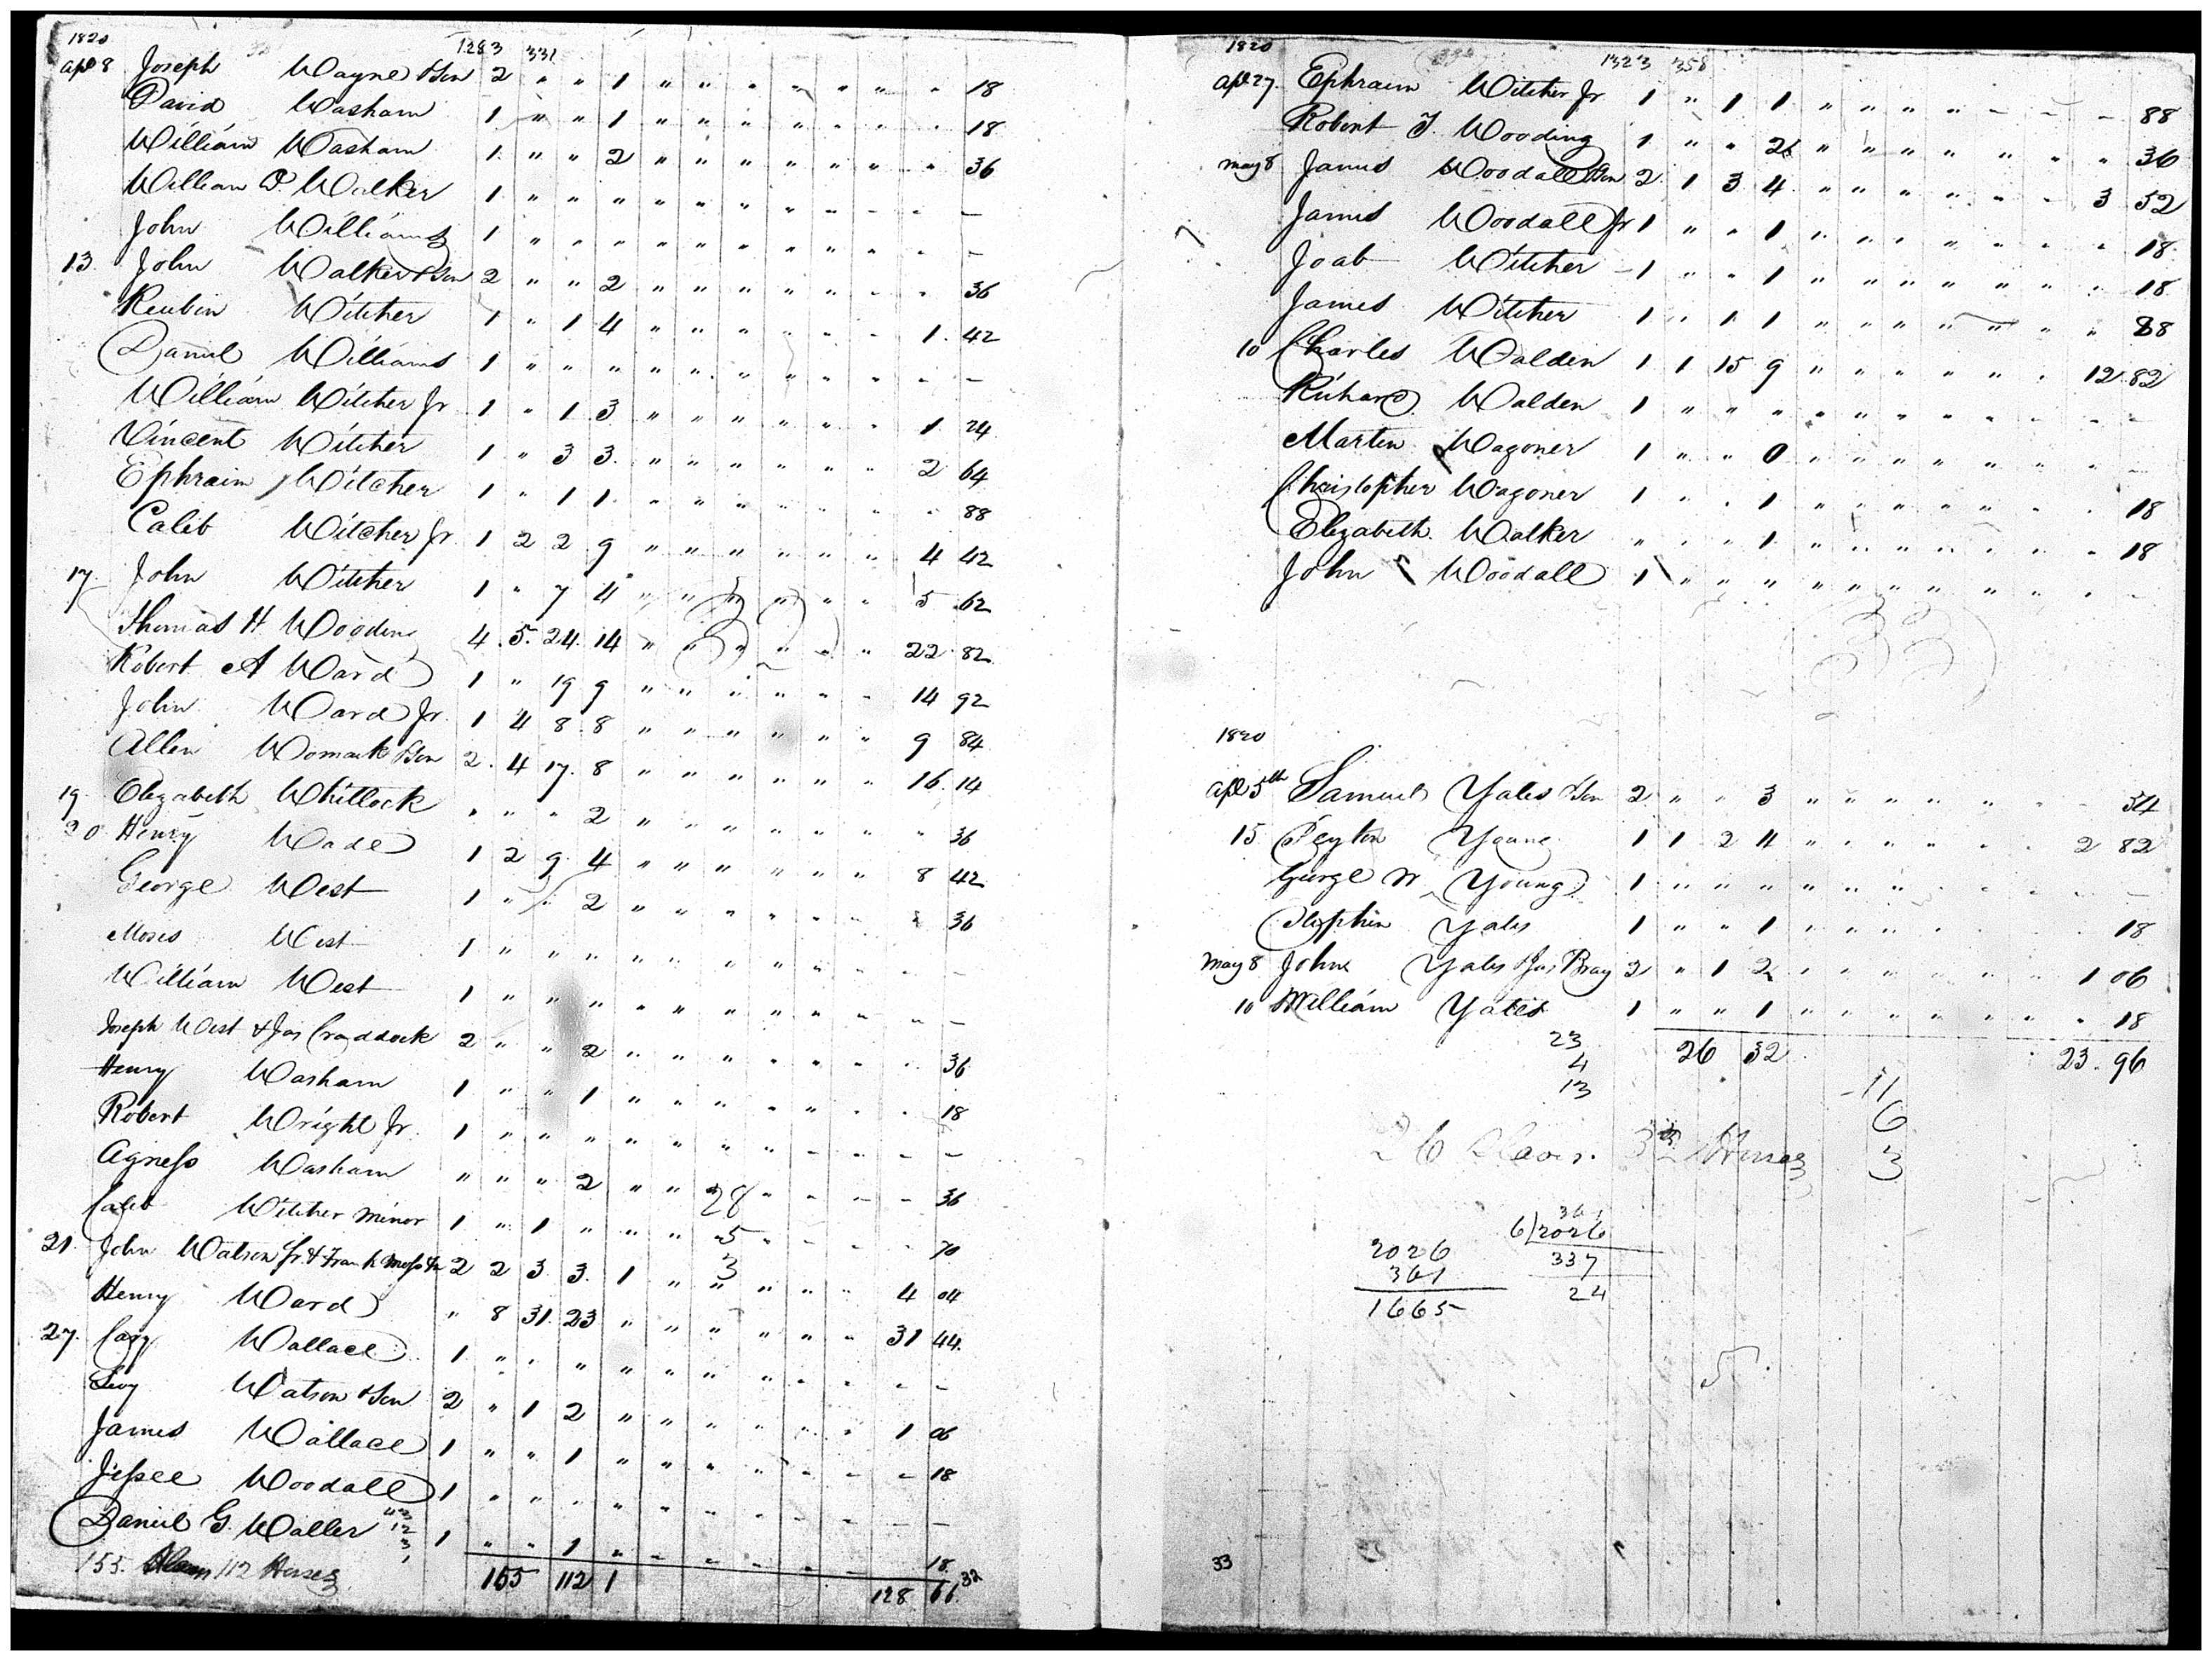 1820 1283 331
Apl 8 Joseph Wayne & Son 2 " " 1 " " " " " " " 18
David Washam 1 " " 1 " " " " " " " 18
William Washam 1 " " 2 " " " " " " " 36
William P. Walker 1 " " " " " " " " " - -
John Williams 1 " " " " " " " " " - -
13 John Walker & Son 2 " " 2 " " " " " " " 36
Reubin Witcher 1 " 1 4 " " " " " " 1 42
Daniel Williams 1 " " " " " " " " " - -
William Witcher Jr 1 " 1 3 " " " " " " 1 24
Vincent Witcher 1 " 3 3 " " " " " " 2 64
Ephraim Witcher 1 " 1 1 " " " " " " " 88
Caleb Witcher Jr 1 2 2 9 " " " " " " 4 42
17 John Witcher 1 " 7 4 " " " " " " 5 62
Thomas H Wooding 4 5 24 14 " " " " " " 22 82
Robert A Ward 1 " 19 9 " " " " " " 14 92
John Ward Jr 1 4 8 8 " " " " " " 9 84
Allen Womack & Son 2 4 17 8 " " " " " " 16 14
19 Elizabeth Whitlock " " " 2 " " " " " " " 36
20 Henry Wade 1 2 9 4 " " " " " " 8 42
George West 1 " " 2 " " " " " " " 36
Moses West 1 " " " " " " " " " - -
William West 1 " " " " " " " " " - -
Joseph West & Jas Craddock 2 " " 2 " " " " " " " 36
Henry Washam 1 " " 1 " " " " " " " 18
Robert Wright Jr 1 " " " " " " " " " - -
Agness Washam " " " 2 " " 28 " " " " 36
Caleb Witcher minor 1 " 1 " " " 5 " " " " 70
21 John Watson Sr & Frank 2 2 3 3 1 " 3 " " " 4 04
Henry Ward " 8 31 23 " " " " " " 31 44
27 Cary Wallace 1 " " " " " " " " " - -
Levy Watson & Son 2 " 1 2 " " " " " " 1 06
James Wallace 1 " " 1 " " " " " " - 18
Jessee Woodall 1 " " " " " " " " " - -
Daniel G. Waller 1 " " 1 " " " " " " - 18
155 112 Horses 155 112 1 128 66 32
1820 1323 358
Apl 27 Ephraim Witcher Jr 1 " 1 1 " " " " " " - 88
Robert T. Wooding 1 " " 2 " " " " " " " 36
May 8 James Woodall & Son 2 1 3 4 " " " " " " 3 52
James Woodall Jr 1 " " 1 " " " " " " " 18
Joab Witcher 1 " " 1 " " " " " " " 18
James Witcher 1 " 1 1 " " " " " " " 88
10 Charles Walden 1 1 15 9 " " " " " " 12 82
Richard Walden 1 " " " " " " " " " - -
Martin Wagoner 1 " " 0 " " " " " " " -
Christopher Wagoner 1 " " 1 " " " " " " " 18
Elizabeth Walker " " " 1 " " " " " " " 18
John Woodall 1 " " " " " " " " " " -
33
1820
Apl 5th Samuel Yates & Son 2 " " 3 " " " " " " - 54
15 Peyton Young 1 1 2 4 " " " " " " 2 82
George W Young 1 " " " " " " " " " - -
Stephen Yates 1 " " 1 " " " " " " - 18
May 8 John Yates & Jas Bray 2 " 1 2 " " " " " " 1 06
10 William Yates 1 " " 1 " " " " " " " 18
23 26 32 23 96
4
13
11
6
3
26 Slaves 32 Horses
2026
361
1665
361
6)2026
337
24
5
33